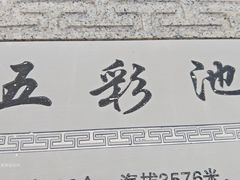 五彩池
海拔3576米